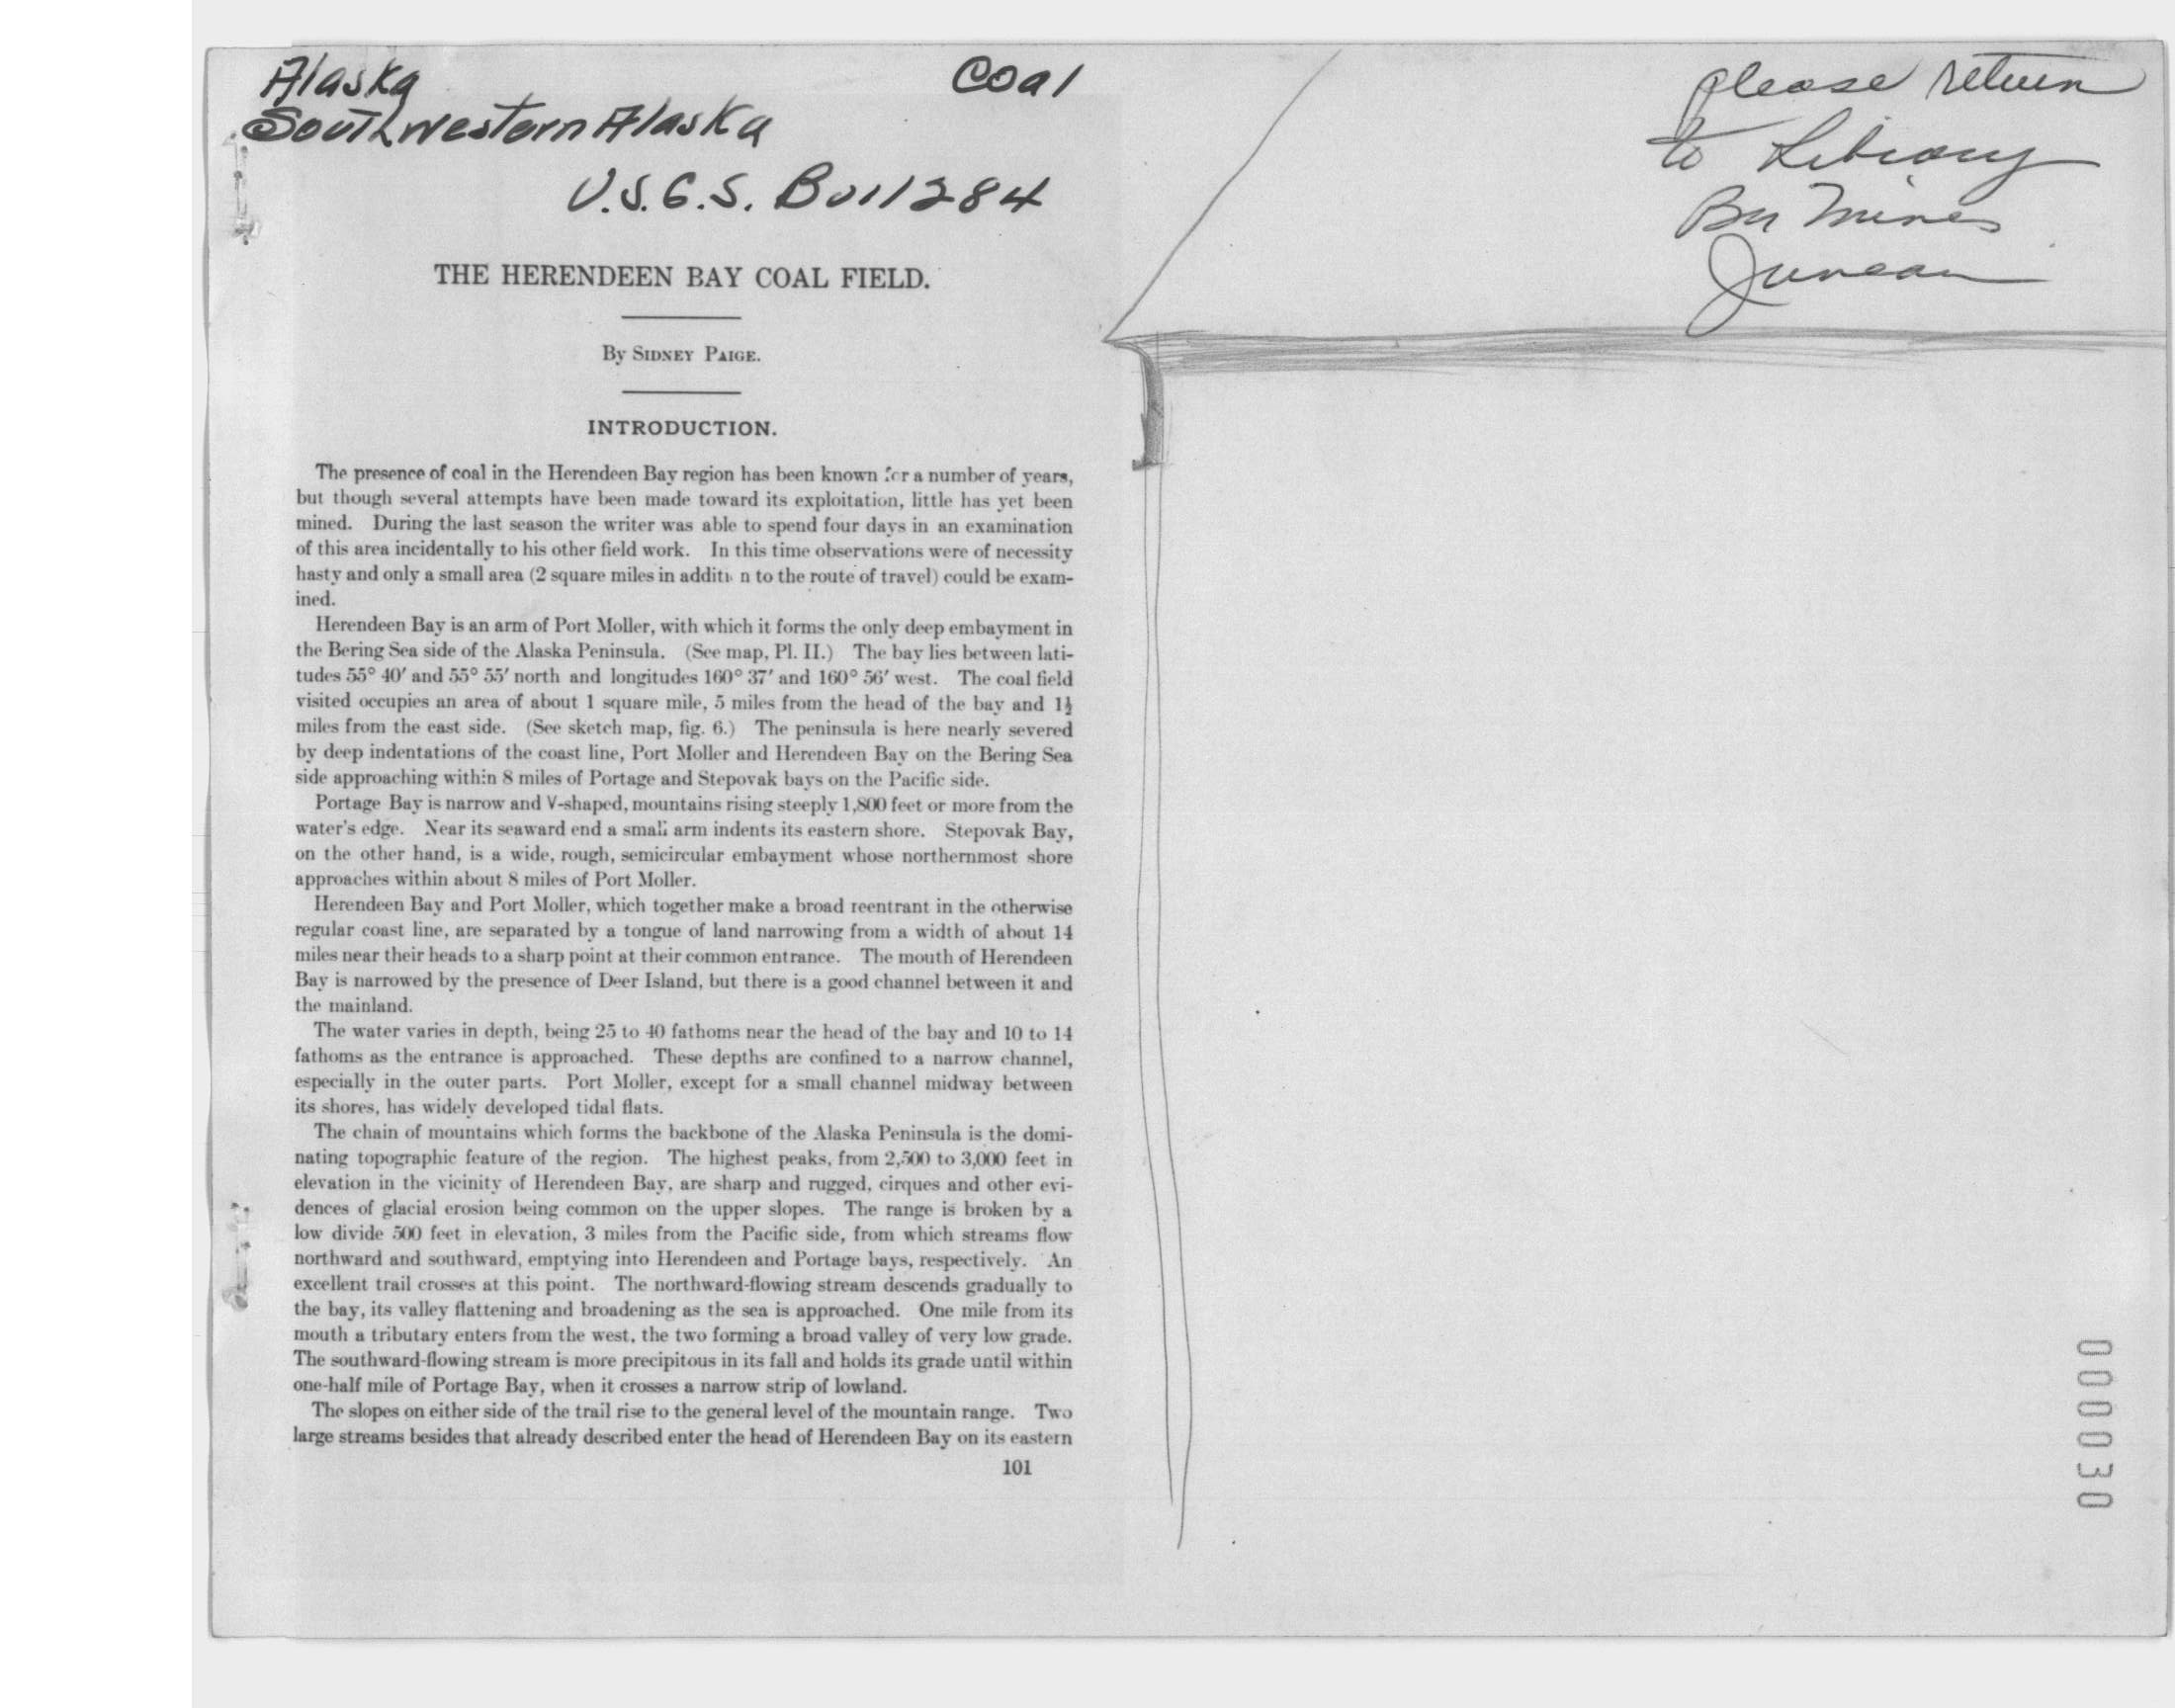 Alaska
Coal
Southwestern Alaska
U.S.G.S. Bull 284
THE HERENDEEN BAY COAL FIELD.
By SIDNEY PAIGE.
INTRODUCTION.
The presence of coal in the Herendeen Bay region has been known for a number of years,
but though several attempts have been made toward its exploitation, little has yet been
mined. During the last season the writer was able to spend four days in an examination
of this area incidentally to his other field work. In this time observations were of necessity
hasty and only a small area (2 square miles in additi n to the route of travel) could be exam-
ined.
Herendeen Bay is an arm of Port Moller, with which it forms the only deep embayment in
the Bering Sea side of the Alaska Peninsula. (See map, Pl. II.) The bay lies between lati-
tudes 55° 40′ and 55° 55′ north and longitudes 160° 37′ and 160° 56′ west. The coal field
visited occupies an area of about 1 square mile, 5 miles from the head of the bay and 1½
miles from the east side. (See sketch map, fig. 6.) The peninsula is here nearly severed
by deep indentations of the coast line, Port Moller and Herendeen Bay on the Bering Sea
side approaching within 8 miles of Portage and Stepovak bays on the Pacific side.
Portage Bay is narrow and V-shaped, mountains rising steeply 1,800 feet or more from the
water's edge. Near its seaward end a small arm indents its eastern shore. Stepovak Bay,
on the other hand, is a wide, rough, semicircular embayment whose northernmost shore
approaches within about 8 miles of Port Moller.
Herendeen Bay and Port Moller, which together make a broad reentrant in the otherwise
regular coast line, are separated by a tongue of land narrowing from a width of about 14
miles near their heads to a sharp point at their common entrance. The mouth of Herendeen
Bay is narrowed by the presence of Deer Island, but there is a good channel between it and
the mainland.
The water varies in depth, being 25 to 40 fathoms near the head of the bay and 10 to 14
fathoms as the entrance is approached. These depths are confined to a narrow channel,
especially in the outer parts. Port Moller, except for a small channel midway between
its shores, has widely developed tidal flats.
The chain of mountains which forms the backbone of the Alaska Peninsula is the domi-
nating topographic feature of the region. The highest peaks, from 2,500 to 3,000 feet in
elevation in the vicinity of Herendeen Bay, are sharp and rugged, cirques and other evi-
dences of glacial erosion being common on the upper slopes. The range is broken by a
low divide 500 feet in elevation, 3 miles from the Pacific side, from which streams flow
northward and southward, emptying into Herendeen and Portage bays, respectively. An
excellent trail crosses at this point. The northward-flowing stream descends gradually to
the bay, its valley flattening and broadening as the sea is approached. One mile from its
mouth a tributary enters from the west, the two forming a broad valley of very low grade.
The southward-flowing stream is more precipitous in its fall and holds its grade until within
one-half mile of Portage Bay, when it crosses a narrow strip of lowland.
The slopes on either side of the trail rise to the general level of the mountain range. Two
large streams besides that already described enter the head of Herendeen Bay on its eastern
101
please return
to Library
Bu Mines
Juneau
000030